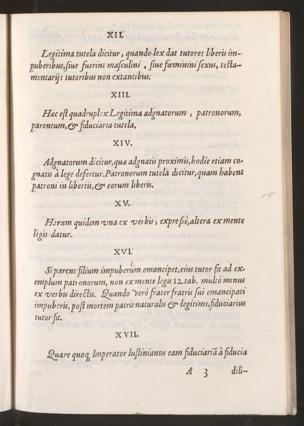 XII.
Legitima tutela dicitur, quando lex dat tutores liberis im-
puberibus, siue fuerint masculini, siue fœminini sexus, testa-
mentarijs tutoribus non extantibus.
XIII.
Hæc est quadruplex: Legitima adgnatorum, patronorum,
parentum, & fiduciaria tutela.
XIV.
Adgnatorum dicitur, quæ adgnatis proximis, hodie etiam co-
gnatis à lege defertur. Patronorum tutela dicitur, quam habent
patroni in libertis, & eorum liberis.
XV.
Harum quidem vna ex verbis, expressè, altera ex mente
legis datur.
XVI.
Si parens filium impuberum emancipet, eius tutor fit ad ex-
emplum patronorum, non ex mente legis 12. tab. multò minus
ex verbis directis. Quando verò frater fratris sui emancipati
impuberis, post mortem patris naturalis & legitimi, fiduciarius
tutor fit.
XVII.
Quare quoq; Imperator Iustinianus eam fiduciariã à fiducia
A 3 dili-